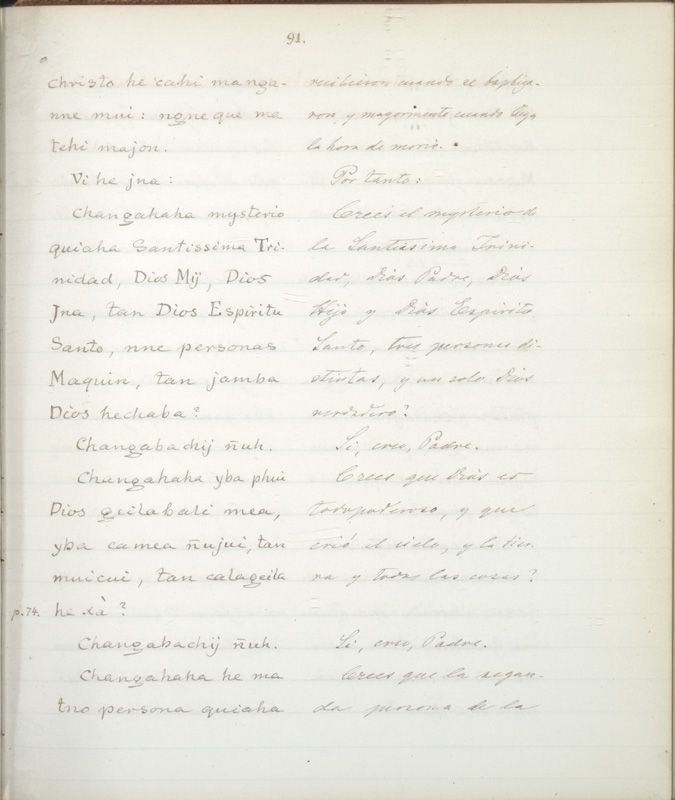 91.
Christo he cahi manga-
nne mui: ngne que me
tehi majon.
Vi he jna:
Changahaha mysterio
quiaha Santissima Tri-
nidad, Dios Mij, Dios
Jna, tan Dios Espiritu
Santo, nne personas
Maquin, tan jamba
Dios hechaba?
Changabachij ñuh.
Changahaha yba phui
Dios geilabali mea,
yba camea ñujui, tan
muicui, tan calageila
p. 74. he xà?
Changabachij ñuh.
Changahaha he ma
tno persona quiaha
recibieron cuando se baptiza-
ron, y mayormente cuando llega
la hora de morir.
Por tanto:
Crees el mysterio de
la Santissima Trini-
dad, Diós Padre, Diós
Hijo y Diós Espirito
Santo, tres personas di-
stintas, y un solo Dios
verdadero?
Si, creo, Padre.
Crees que Diós es
todopoderoso, y que
crió el cielo, y la tier-
ra y todas las cosas?
Si, creo, Padre.
Crees que la segun-
da persona de la